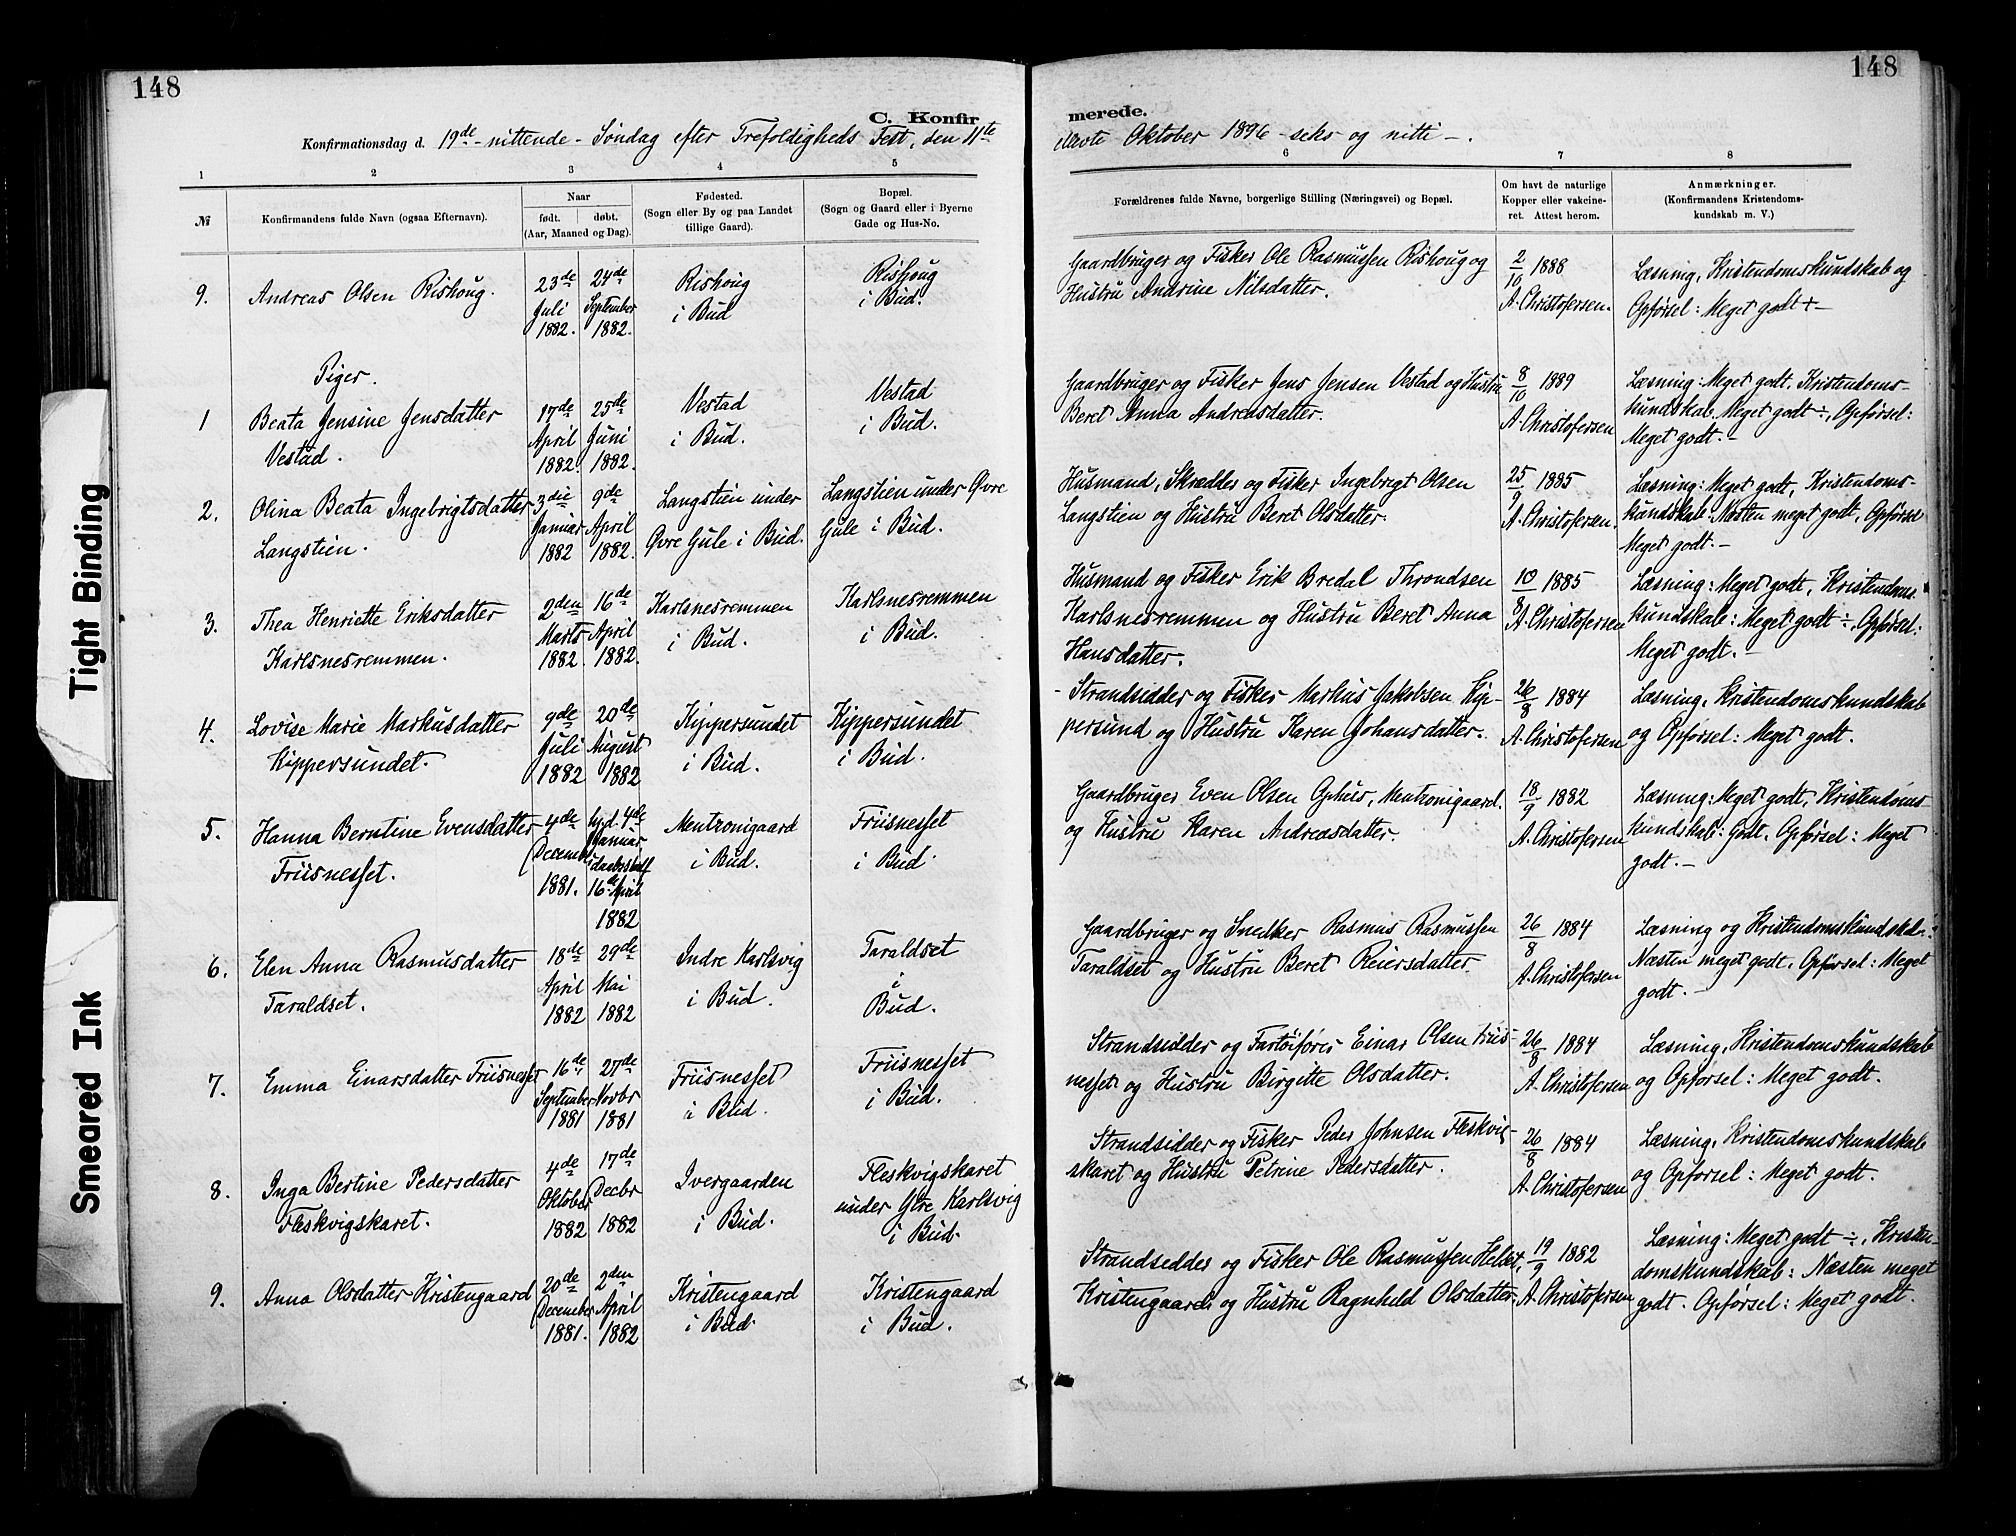 148
148
C. Konfir
merede.
Konfirmationsdag d. 19de - nittende - Søndag efter Trefoldigheds Fest, den 11te
ellevte Oktober 1896 - seks og nitti -.
1 2 3 4 5
6 7 8
№
Konfirmandens fulde Navn (ogsaa Efternavn).
Naar
født. døbt.
(Aar, Maaned og Dag).
Fødested.
(Sogn eller By og paa Landet
tillige Gaard).
Bopæl.
(Sogn og Gaard eller i Byerne
Gade og Hus-No.
Forældrenes fulde Navne, borgerlige Stilling (Næringsvei) og Bopæl.
Om havt de naturlige
Kopper eller vakcine-
ret. Attest herom.
Anmærkninger.
(Konfirmandens Kristendoms-
kundskab m. V.)
9. Andreas Olsen Rishoug.
23de
Juli
1882.
24de
September
1882.
Rishoug
i Bud
Rishoug
i Bud.
Gaardbruger og Fisker Ole Rasmussen Rishoug og
Hustru Andrine Nilsdatter.
2/10 1888
A. Christofersen.
Læsning, Kristendomskundskab og
Opførsel: Meget godt +-
Piger.
1 Beata Jensine Jensdatter
Vestad.
17de
April
1882.
25de
Juni
1882.
Vestad
i Bud.
Vestad
i Bud.
Gaardbruger og Fisker Jens Jensen Vestad og Hustru
Beret Anna Andreasdatter.
8/10 1889
A. Christofersen
Læsning: Meget godt, Kristendoms-
kundskab Meget godt ÷, Opførsel:
Meget godt. -
2. Olina Beata Ingebrigtsdatter
Langstien.
3die
Januar
1882
9de
April
1882.
Langstien under
Øvre Gule i Bud.
Langstien under Øvre
Gule i Bud.
Husmand, Skrædder og Fisker Ingebrigt Olsen
Langstien og Hustru Beret Olsdatter.
25/9 1885
A. Christofersen.
Læsning: Meget godt, Kristendoms-
kundskab: Næsten meget godt, Opførsel
Meget godt. -
3. Thea Henriette Eriksdatter
Karlsnesremmen.
2den
Marts
1882.
16de
April
1882.
Karlsnesremmen
i Bud.
Karlsnesremmen
i Bud.
Husmand og Fisker Erik Bredal Throndsen
Karlsnesremmen og Hustru Beret Anna
Hansdatter.
10/8 1885
A. Christofersen
Læsning: Meget godt, Kristendoms
kundskab: Meget godt ÷, Opførsel:
Meget godt. -
4. Lovise Marie Markusdatter
Kippersundet.
9de
Juli
1882
20de
August
1882
Kippersundet
i Bud.
Kippersundet
i Bud.
- Strandsidder og Fisker Markus Jakobsen Kip-
persund og Hustru Karen Johansdatter.
26/8 1884
A. Christofersen
Læsning, Kristendomskundskab
og Opførsel: Meget godt.
5. Hanna Berntine Evensdatter
Friisnesset.
4de
December
1881.
hjd. 4de
Januar
16de April
1882
Mentzonigaard
i Bud.
Friisnesset
i Bud.
Gaardbruger Even Olsen Ophus, Mentzonigaard.
og Hustru Karen Andreasdatter.
18/9 1882
A. Christofersen
Læsning: Meget godt, Kristendoms
kundskab: Godt. Opførsel: Meget
godt. -
6. Elen Anna Rasmusdatter
Taraldset.
18de
April
1882
29de
Mai
1882
Indre Karlsvig
i Bud.
Taraldset
i
Bud.
Gaardbruger og Snedker Rasmus Rasmussen
Taraldset og Hustru Beret Reiersdatter
26/8 1884
A. Christofersen
Læsning og Kristendomskundskab:
Næsten meget godt, Opførsel: Meget
godt. -
7. Emma Einarsdatter Friisnesset
16de
September
1881
27de
Novbr
1881
Friisnesset
i Bud.
Friisnesset
i Bud.
Strandsidder og Fartøifører Einar Olsen Friis-
nesset og Hustru Birgitte Olsdatter.
26/8 1884
A. Christofersen
Læsning, Kristendomskundskab
og Opførsel: Meget godt.
8. Inga Bertine Pedersdatter
Fleskvigskaret.
4de
Oktober
1882
17de
Decbr
1882
Ivergaarden
i Bud.
Fleskvigskaret
under Ytre Karlsvig
i Bud.
Strandsidder og Fisker Peder Johnsen Fleskvig-
skaret og Hustru Petrine Pedersdatter.
26/8 1884
A. Christofersen
Læsning, Kristendomskundskab
og Opførsel: Meget godt.
9. Anna Olsdatter Kristengaard
20de
December
1881.
2den
April
1882
Kristengaard
i Bud.
Kristengaard
i Bud.
Strandsidder og Fisker Ole Rasmussen Helset,
Kristengaard, og Hustru Ragnhild Olsdatter.
19/9 1882
A. Christofersen
Læsning: Meget godt ÷, Kristen-
domskundskab: Næsten meget
godt. Opførsel: Meget godt.
Tight Binding
Smeared Ink